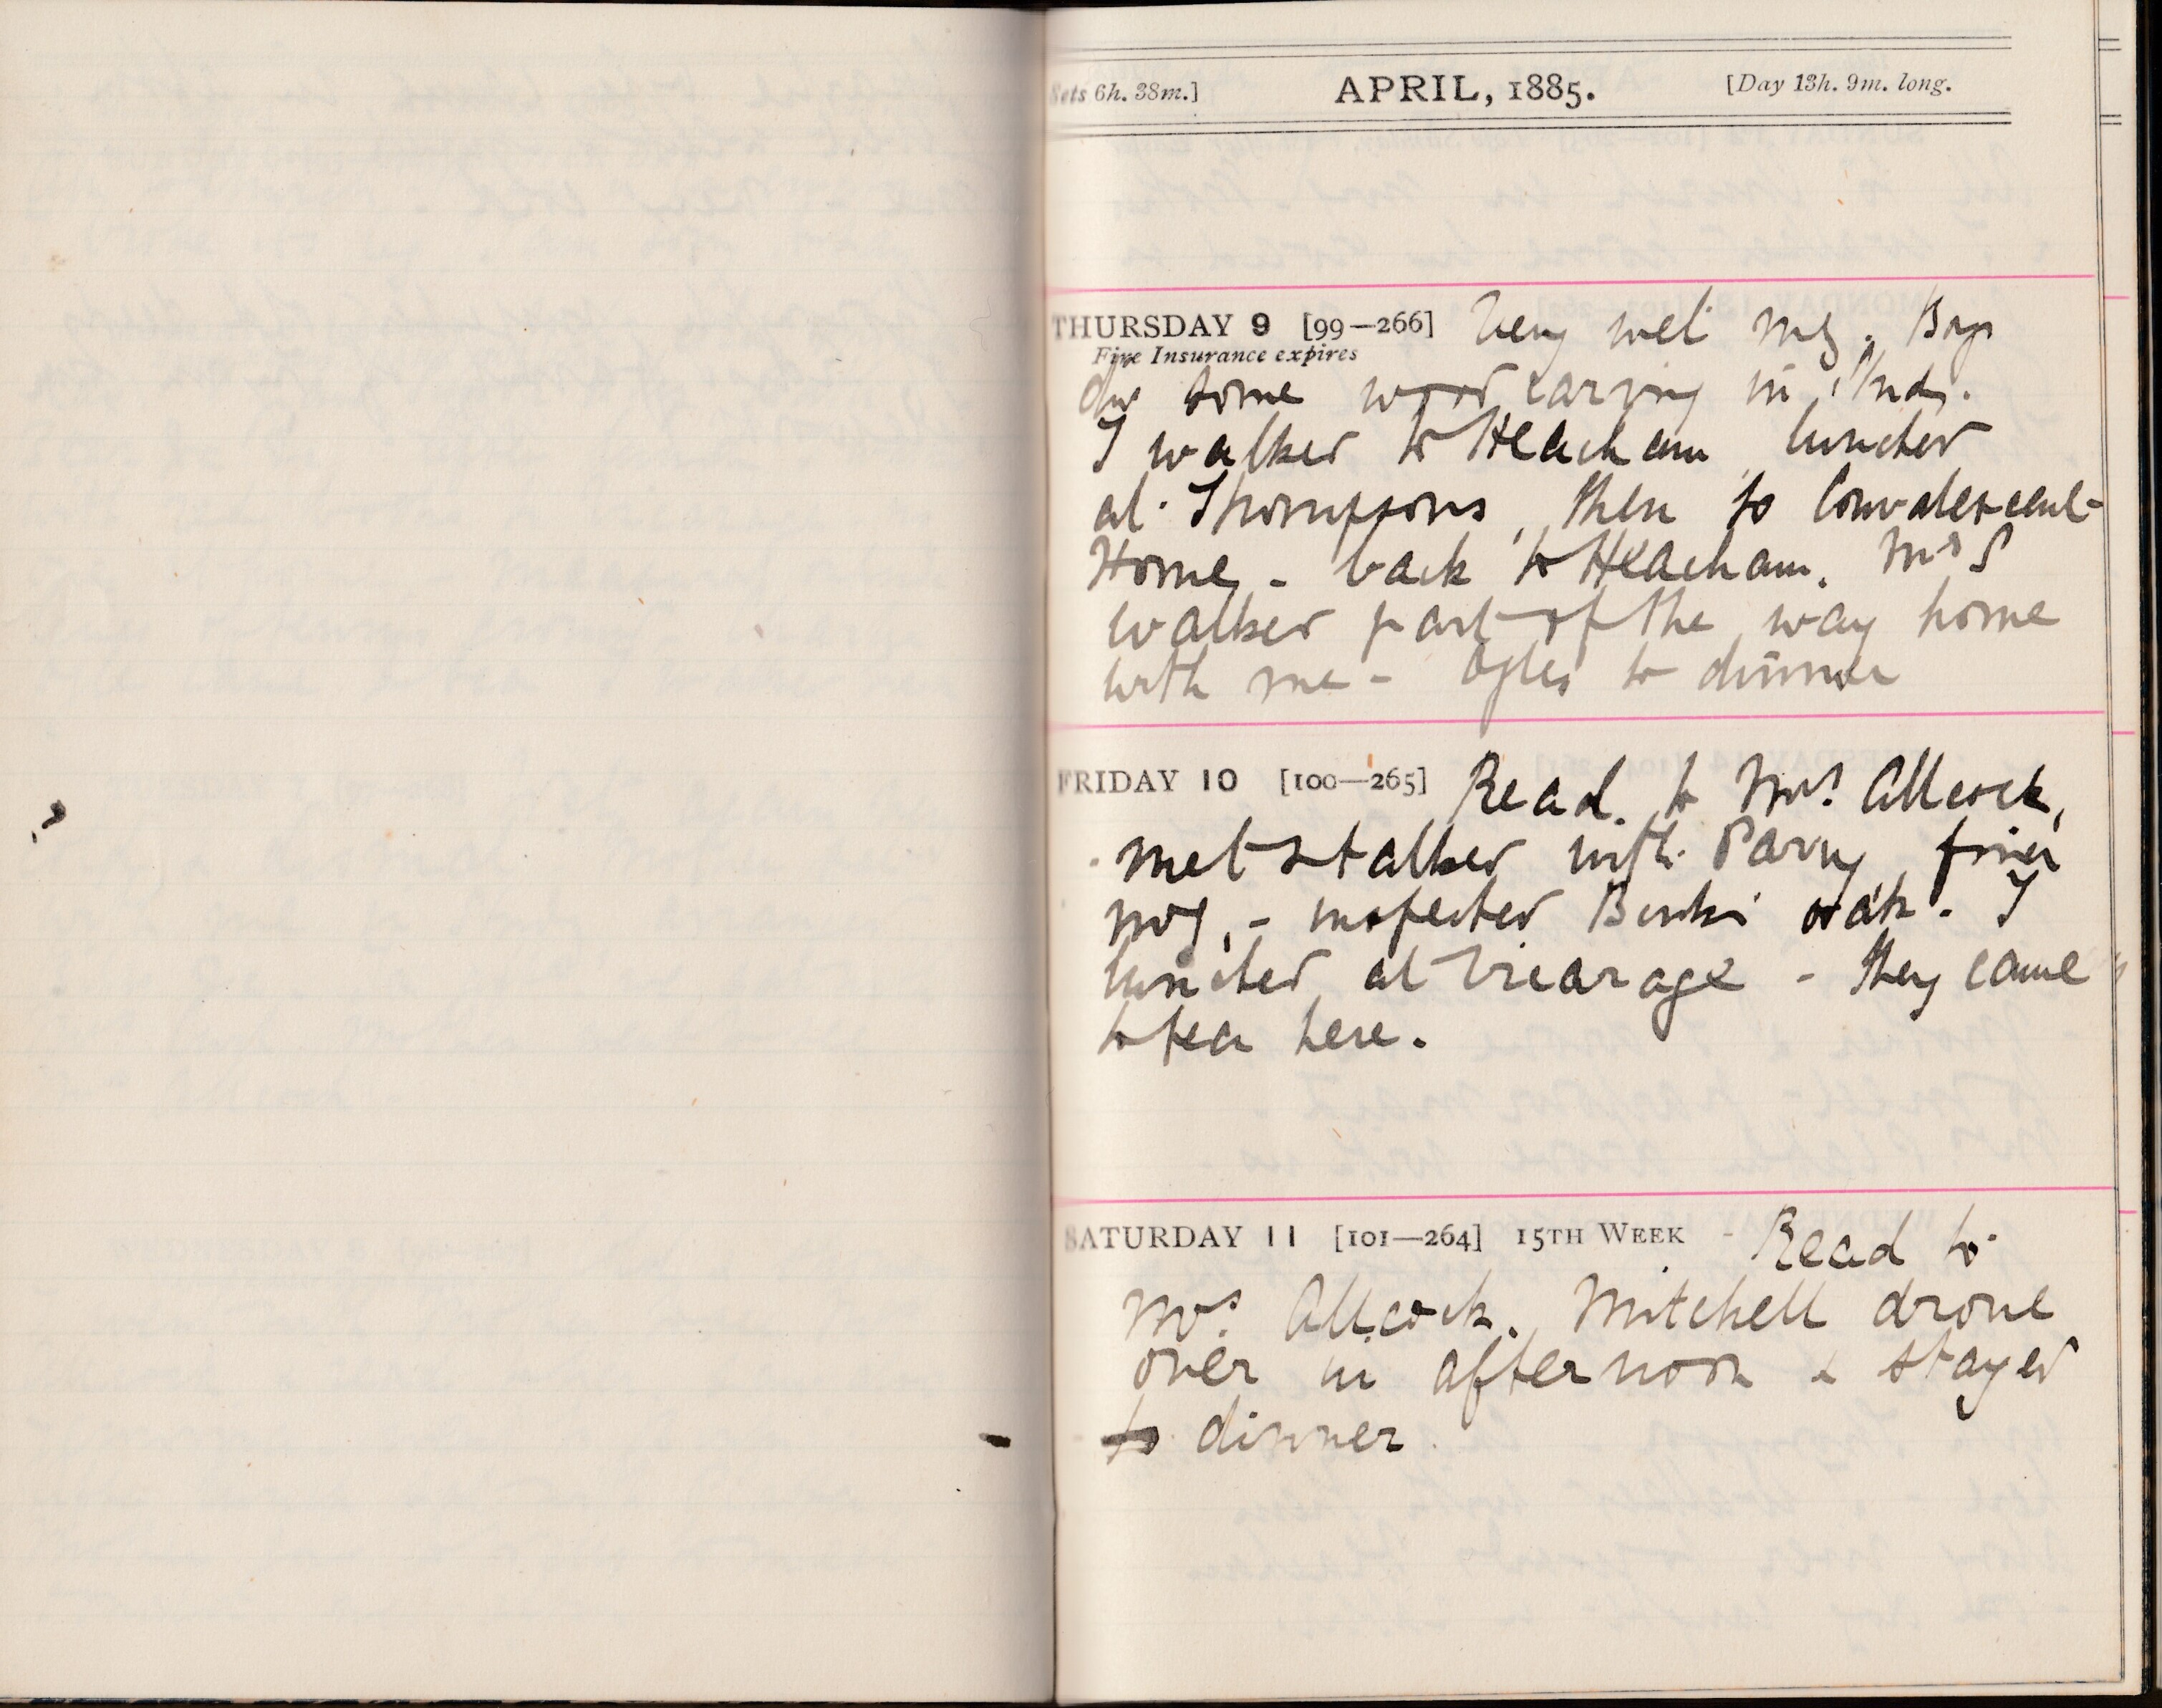 Sets 6h. 38m.] APRIL, 1885. [Day 13h. 9m. long.
THURSDAY 9 [99—266] Very wet mg. Boys
Fire Insurance expires
some wood carving in
I walked to Heacham, lunched
at Thompsons, then to Convalescent
Home - back to Heacham. Mrs S
walked part of the way home
with me - Ogles to dinner
FRIDAY 10 [100—265] Read to Mrs. Allcock,
met & talked with Parry
mg, - inspected work. I
lunched at Vicarage - they came
to tea here.
SATURDAY 11 [101—264] 15TH WEEK Read to
Mrs. Allcock. Mitchell drove
over in afternoon & stayed
to dinner.